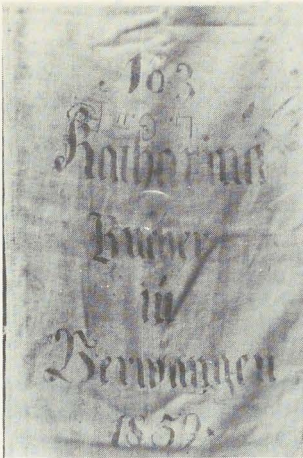 103
Katharina
Bucher
in
Berwangen
1859.